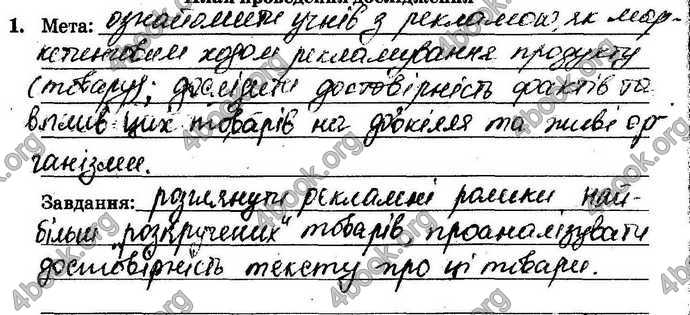 План проведення дослідження
1. Мета: ознайомити учнів з рекламою, як мар-
кетинговим ходом рекламування продукту
(товару); дослідити достовірність фактів та
вплив цих товарів на довкілля та живі ор-
ганізми.
Завдання: розглянути рекламні ролики най-
більш „розкручених" товарів, проаналізувати
достовірність тексту про ці товари.
4book.org